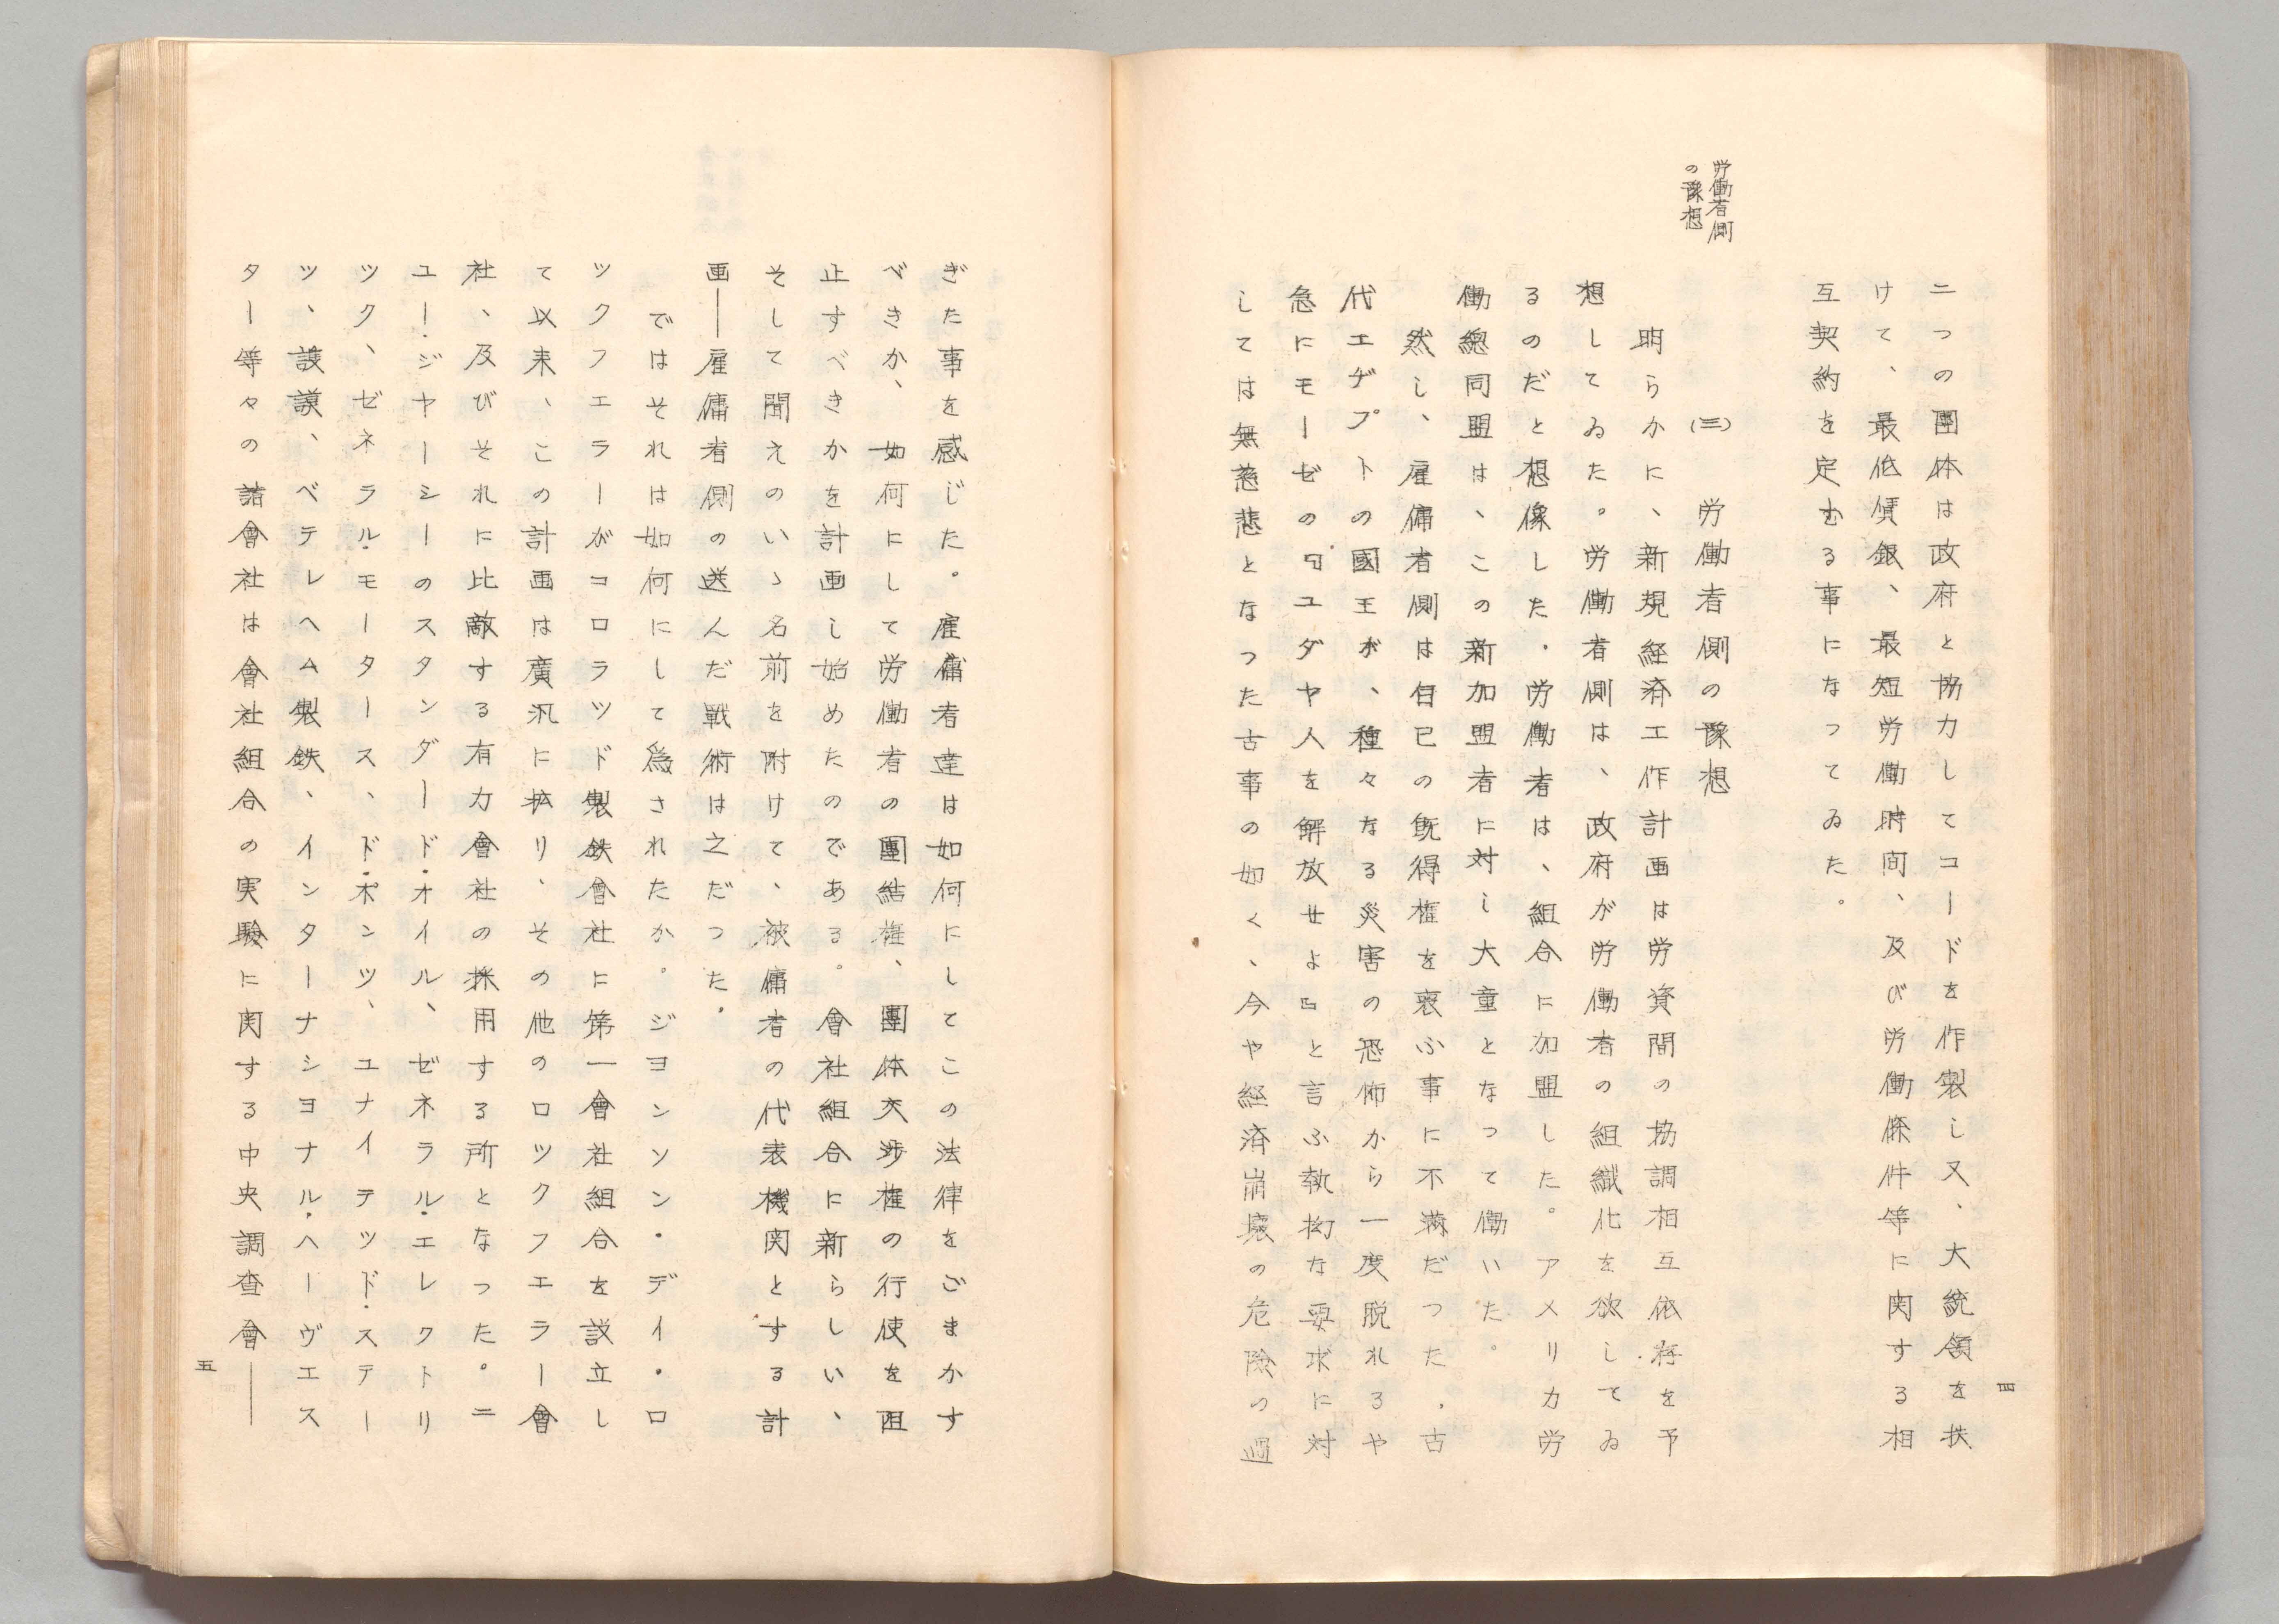 二つの團体は政府と協力してコードを作製し又、大統領を扶
けて、最低賃銀、最短労働時間、及び労働條件等に関する相
互契約を定むる事になってゐた。
労働者側
の豫想
(三) 労働者側の豫想
明らかに、新規経済工作計画は労資間の協調相互依存を予
想してゐた。労働者側は、政府が労働者の組織化を欲してゐ
るのだと想像した。労働者は、組合に加盟した。アメリカ労
働總同盟は、この新加盟者に対し大童となって働いた。
然し、雇傭者側は自已の既得権を喪ふ事に不満だつた、古
代エヂプトの國王が、種々なる災害の恐怖から一度脱れるや
急にモーゼの『ユダヤ人を解放せよ』と言ふ執拘な要求に対
しては無慈悲となつた古事の如く、今や経済崩壊の危険の過
四
ぎた事を感じた。雇傭者達は如何にしてこの法律をごまかす
べきか、如何にして労働者の團結権、團体交渉権の行使を阻
止すべきかを計画し始めたのである。會社組合に新らしい、
そして聞えのいゝ名前を附けて、被傭者の代表機関とする計
画――雇傭者側の送んだ戦術は之だつた。
ではそれは如何にして爲されたか。ジヨンソン・デイ・ロ
ツクフエラーがコロラツド製鉄會社に第一會社組合を設立し
て以来、この計画は廣汎に拡リ、その他のロツクフエラー會
社、及びそれに比敵する有力會社の採用する所となつた。ニ
ユー・ジヤーシーのスタンダード・オイル、ゼネラル・エレクトリ
ツク、ゼネラル・モータース、ド・ポンツ、ユナイテツド・ステー
ツ、護謨、ベテレヘム製鉄、インターナシヨナル・ヘーヴエス
ター等々の諸會社は會社組合の実験に関する中央調査會――
五